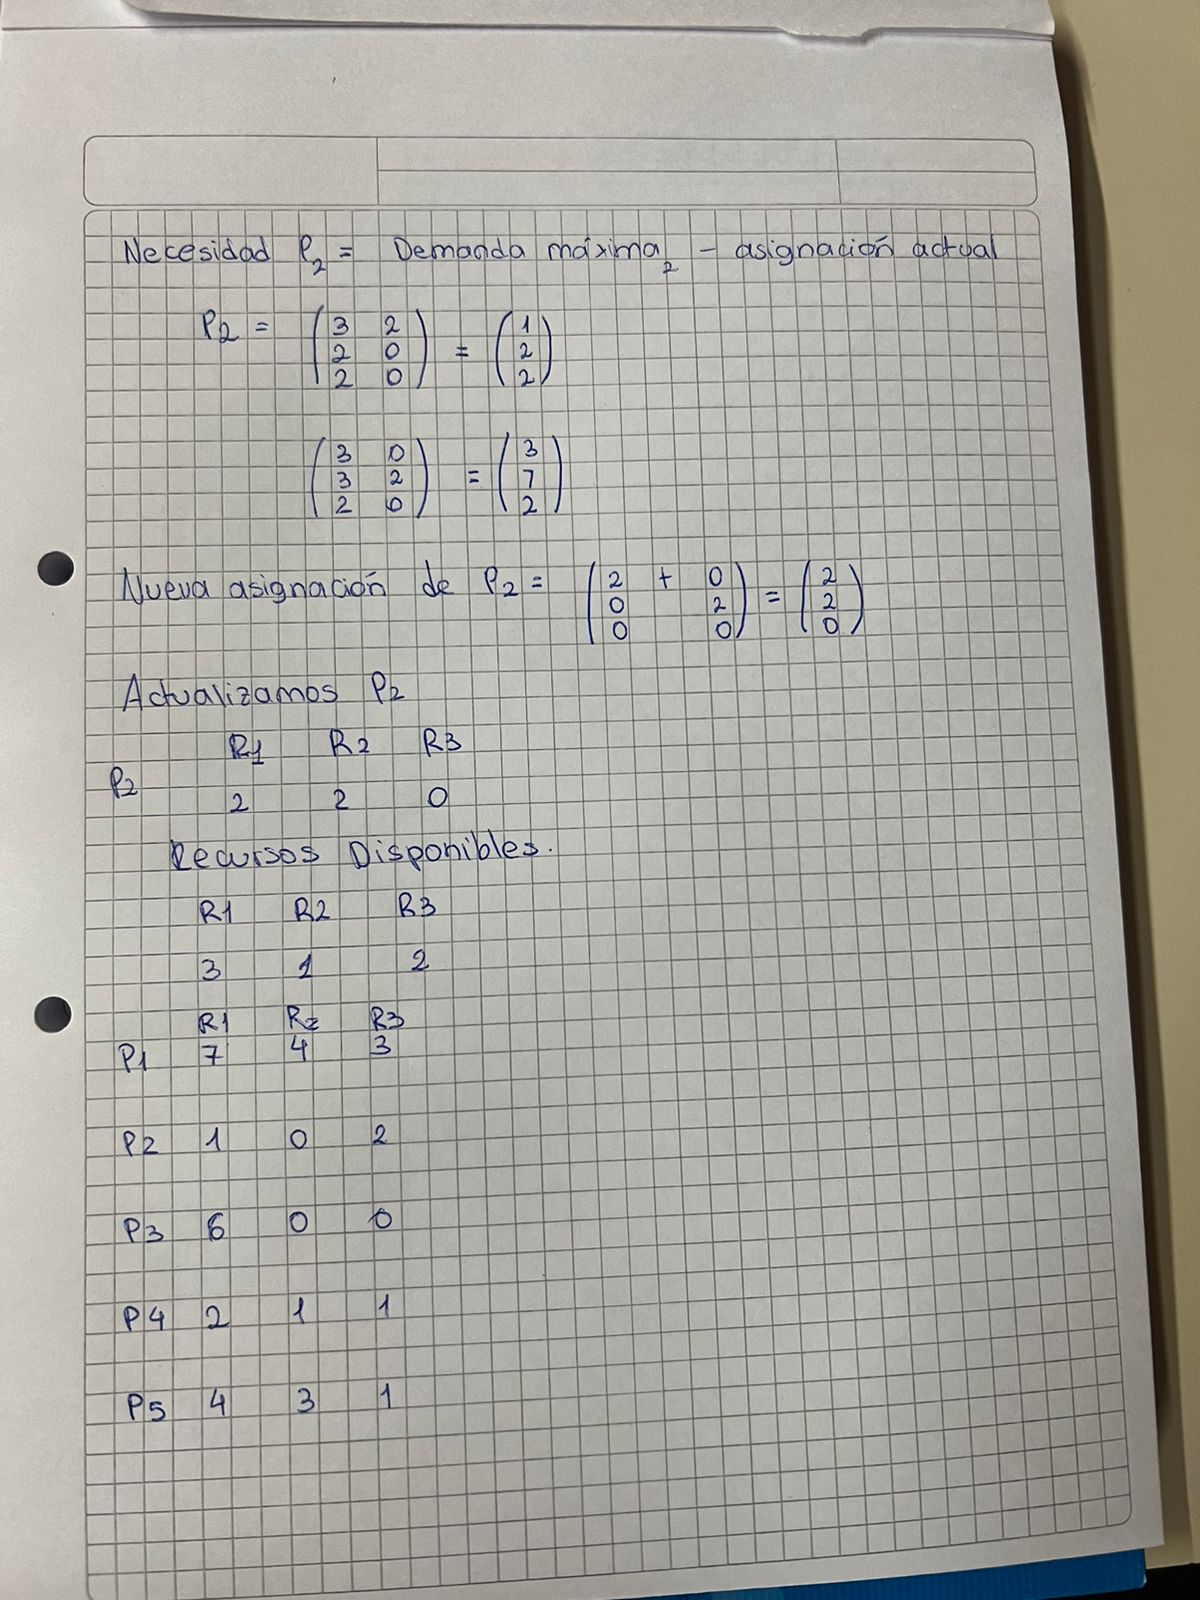 Necesidad P2 = Demanda máxima2 - asignación actual
P2 = (3 2) = (1)
2 0 2
2 0 2
(3 0) = (3)
3 2 7
2 0 2
Nueva asignación de P2 = (2 + 0) = (2)
0 2 2
0 0 0
Actualizamos P2
R1 R2 R3
P2
2 2 0
Recursos Disponibles.
R1 R2 R3
3 1 2
R1 R2 R3
P1 7 4 3
P2 1 0 2
P3 6 0 0
P4 2 1 1
P5 4 3 1